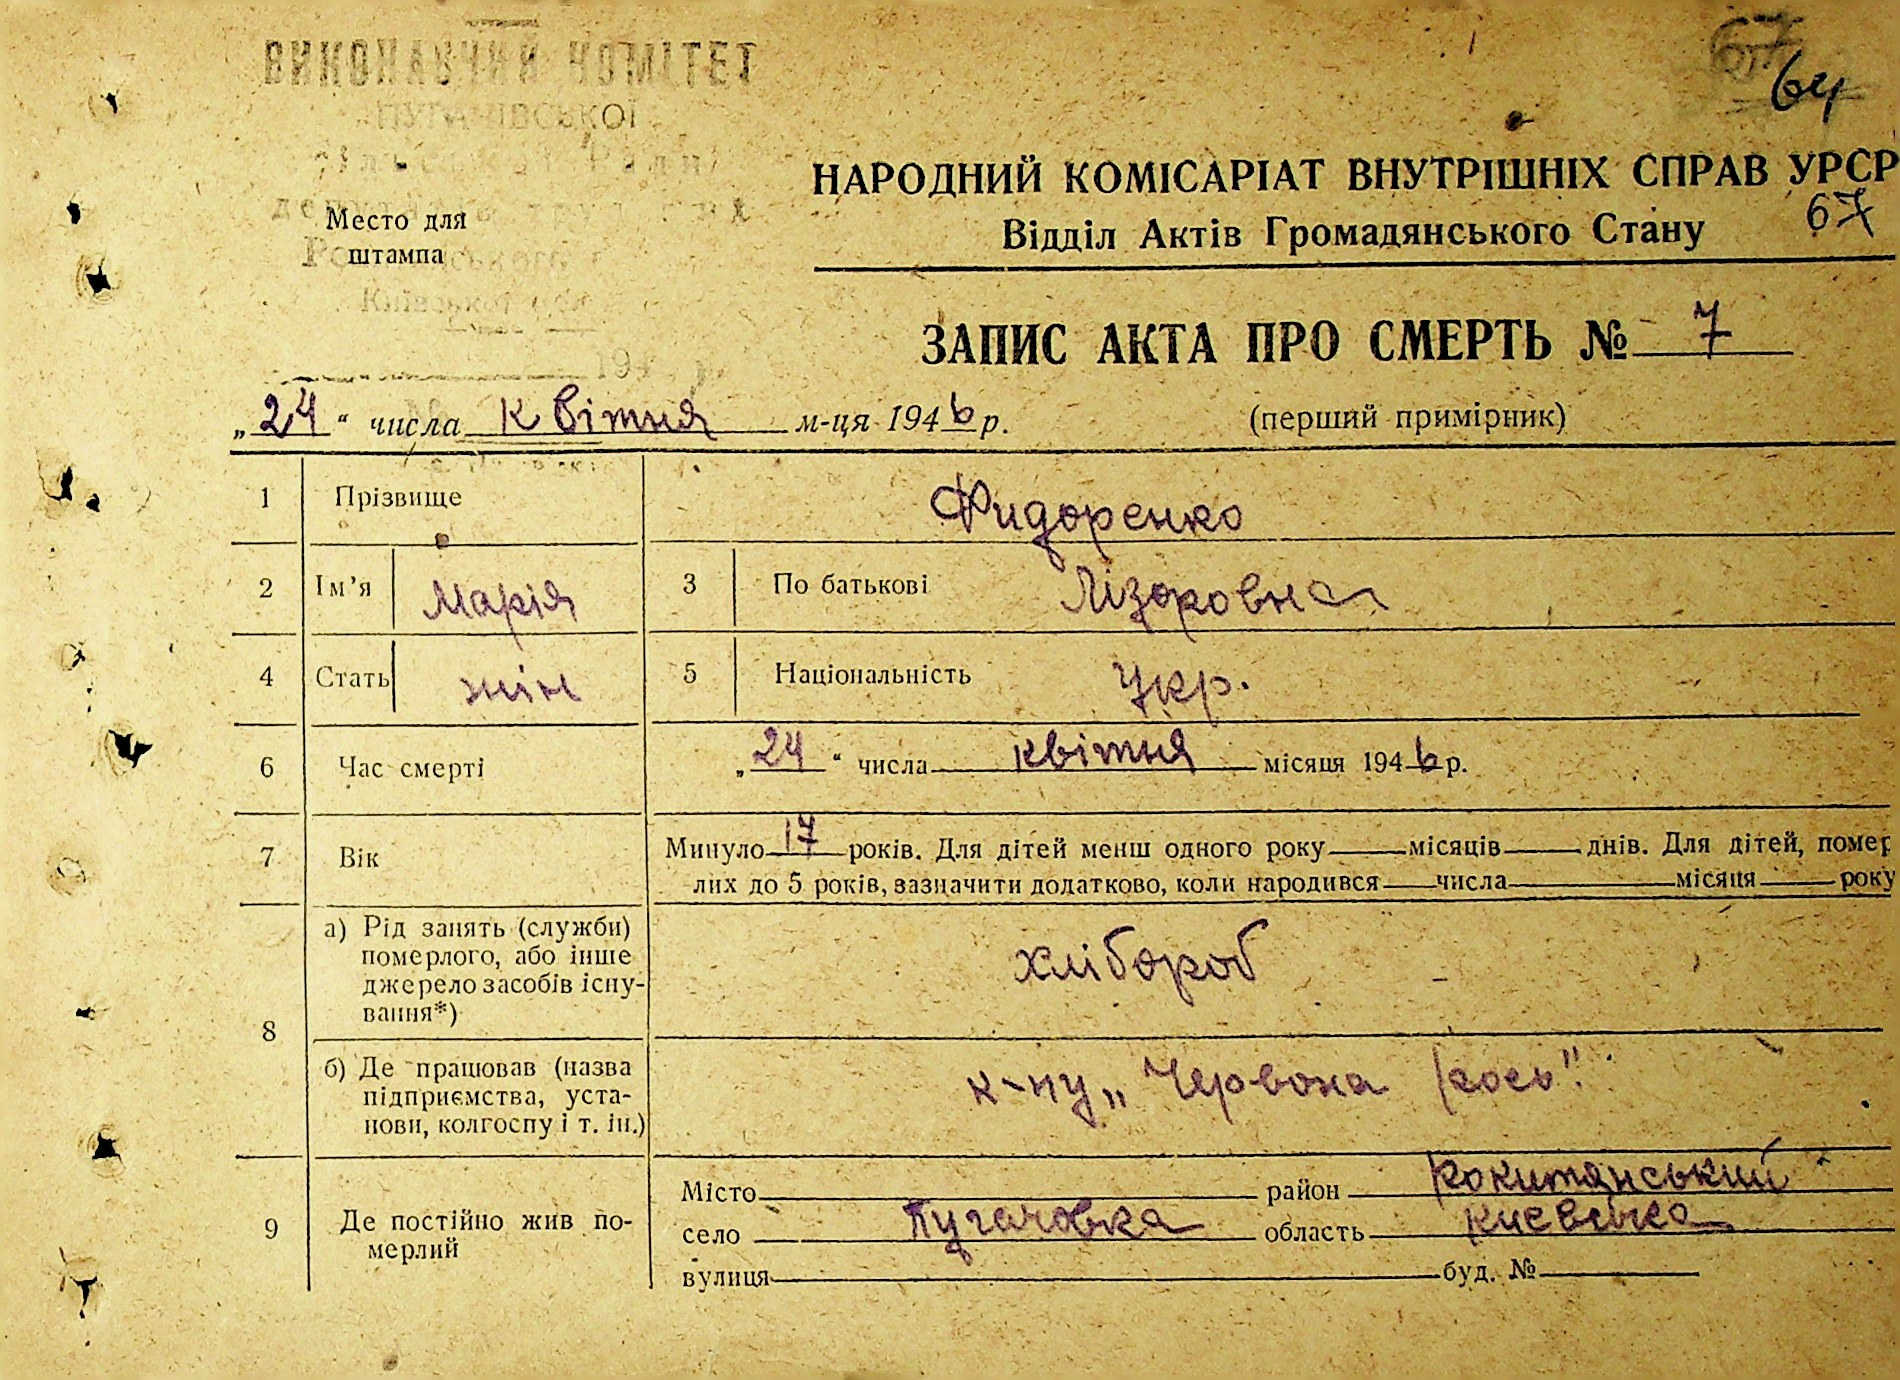 ВИКОНАВЧИЙ КОМІТЕТ
ПУГАЧІВСЬКОЇ
Место для
штампа
Київської обл
194
67
64
НАРОДНИЙ КОМІСАРІАТ ВНУТРІШНІХ СПРАВ УРСР
67
Відділ Актів Громадянського Стану
ЗАПИС АКТА ПРО СМЕРТЬ № 7
„24“ числа квітня м-ця 1946 р. (перший примірник)
1 Прізвище Фидоренко
2 Ім’я Марія 3 По батькові Лізоровна
4 Стать жін 5 Національність Укр.
6 Час смерті „24“ числа квітня місяця 1946 р.
7 Вік Минуло 17 років. Для дітей менш одного року місяців днів. Для дітей, помер
лих до 5 років, зазначити додатково, коли народився числа місяця року
8 а) Рід занять (служби)
померлого, або інше
джерело засобів існу-
вання*)
хлібороб
б) Де працював (назва
підприємства, уста-
нови, колгоспу і т. ін.)
к-пу „Червона рось"
9 Де постійно жив по-
мерлий
Місто район Рокитянський
село Пугачовка область Киевська
вулиця буд. №